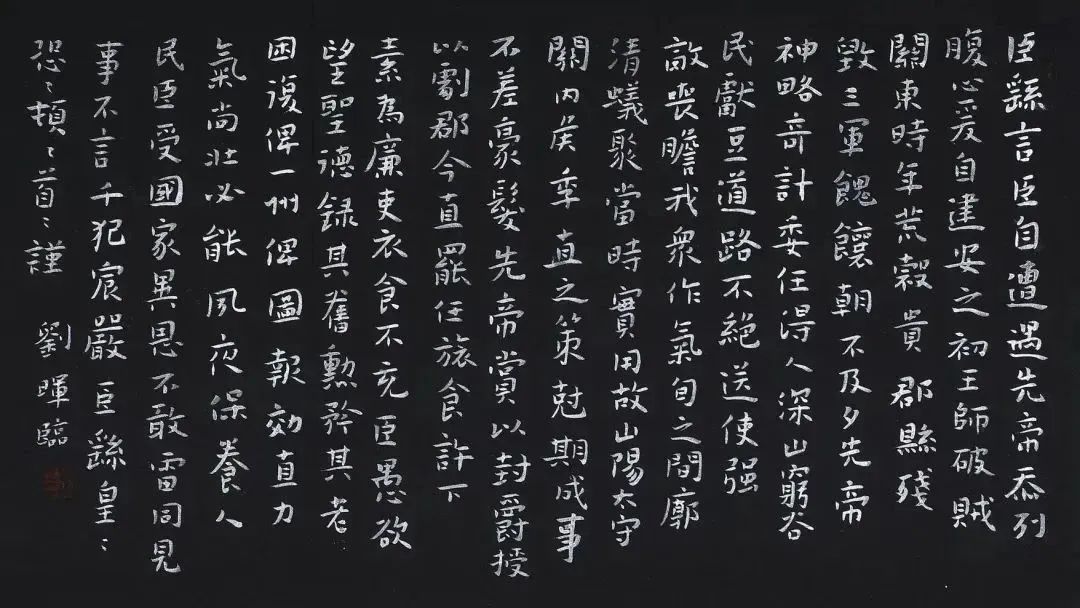 臣繇言臣自遭遇先帝忝列
腹心爰自建安之初王師破賊
關東時年荒穀貴郡縣殘
毀三軍餽饟朝不及夕先帝
神略奇計委任得人深山窮谷
民獻豆道路不絕送使强
敵喪膽我衆作氣旬之間廓
清蟻聚當時實用故山陽太守
關内矦季直之策尅期成事
不差豪髮先帝賞以封爵授
以劇郡今直罷任旅食許下
素為廉吏衣食不充臣愚欲
望聖德録其舊勳矜其老
困復俾一州俾圖報効直力
氣尚壯必能夙夜保養人
民臣受國家異恩不敢雷同見
事不言干犯宸嚴臣繇皇〻
恐〻頓〻首〻謹
劉暉臨